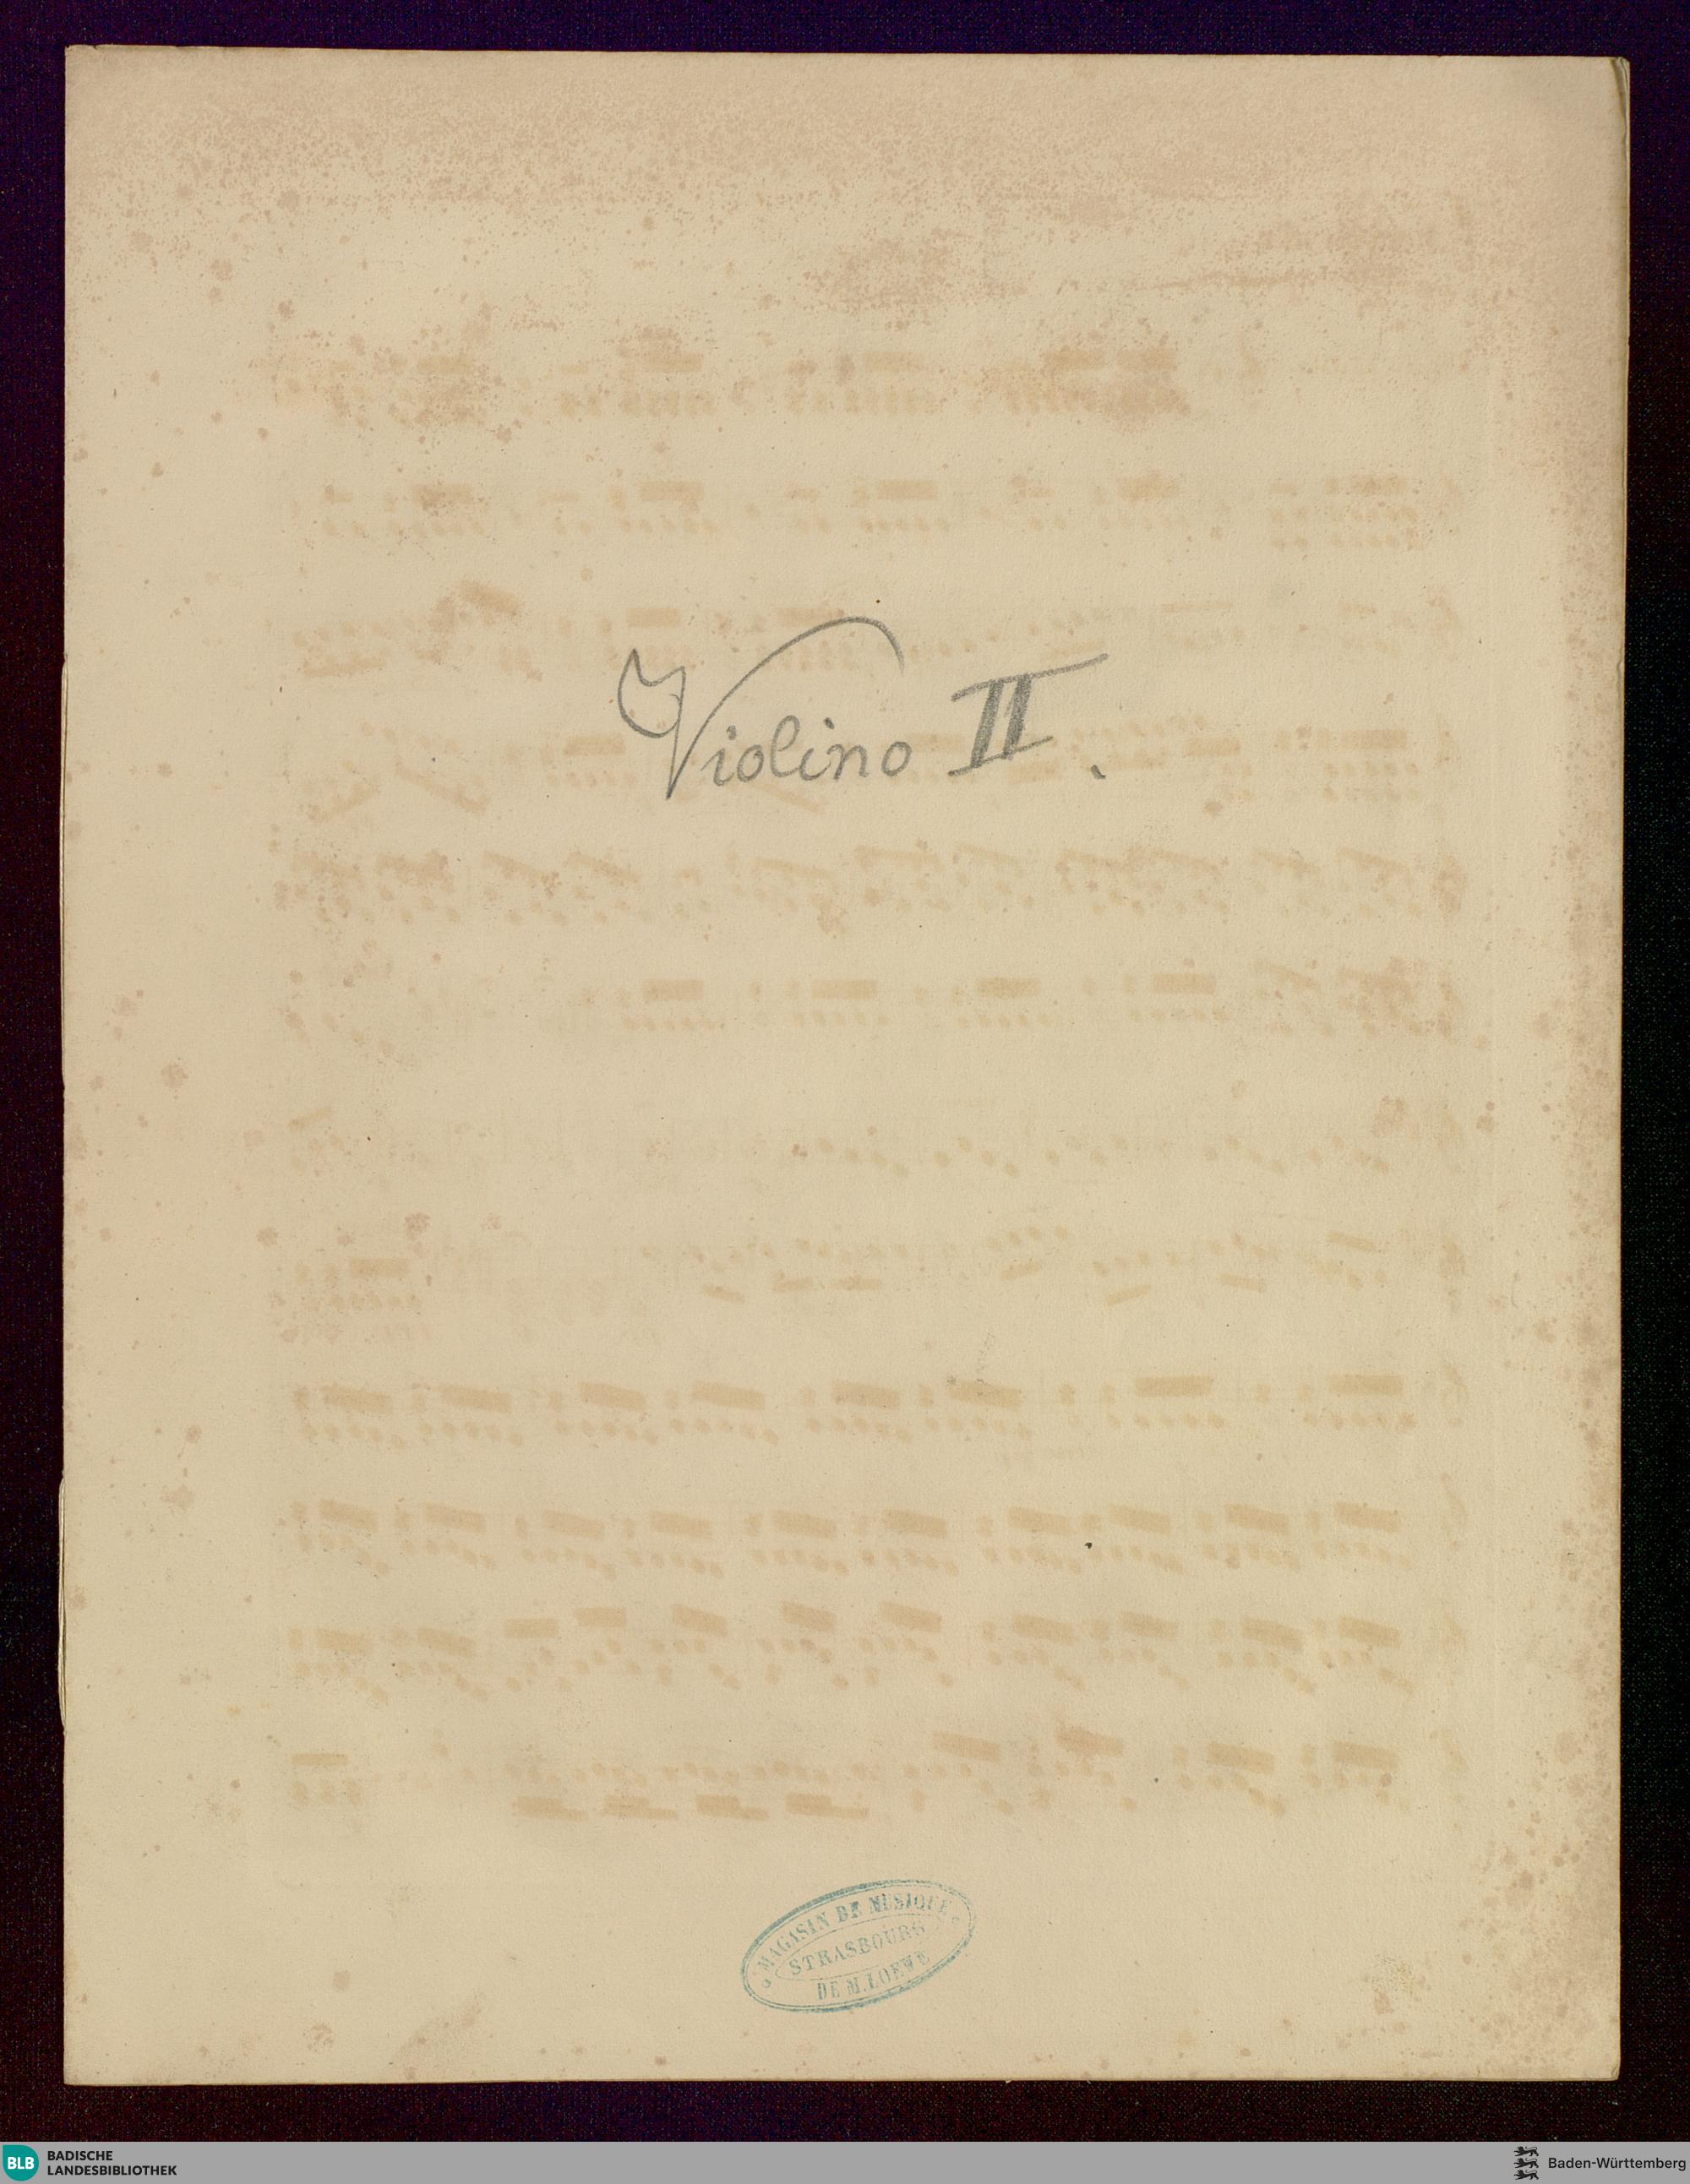 Violino II.
MAGASIN DE MUSIQUE
STRASBOURG
DE M. LOEWE
BLB BADISCHE
LANDESBIBLIOTHEK
Baden-Württemberg